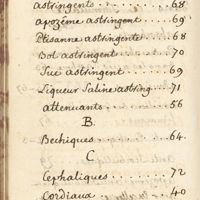 astringents . . . . . . . . . 68
apozême astringent . . . . 69
Ptisanne astringente . . . 68
Bol astringent . . . . . . . 70
Suc astringent . . . . . . 69
Liqueur Saline astring. 71
attenuants . . . . . . . . . . 56
B.
Bechiques . . . . . . . . . . 64.
C
Cephaliques . . . . . . . . . 72
Cordiaux . . . . . . . . . . 40